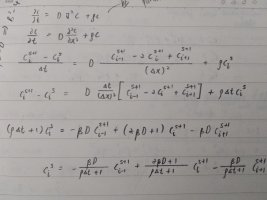 ∂c/∂t = D ∇²c + ρc
∂c/∂t = D ∂²c/∂x² + ρc
(c_i^{s+1} - c_i^s)/Δt = D (c_{i-1}^{s+1} - 2c_i^{s+1} + c_{i+1}^{s+1})/(Δx)² + ρc_i^s
c_i^{s+1} - c_i^s = D Δt/(Δx)² [c_{i-1}^{s+1} - 2c_i^{s+1} + c_{i+1}^{s+1}] + ρΔt c_i^s
(ρΔt+1) c_i^s = -βD c_{i-1}^{s+1} + (2βD+1) c_i^{s+1} - βD c_{i+1}^{s+1}
c_i^s = - βD/(ρΔt+1) c_{i-1}^{s+1} + (2βD+1)/(ρΔt+1) c_i^{s+1} - βD/(ρΔt+1) c_{i+1}^{s+1}